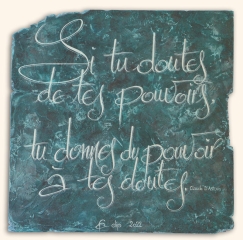 Si tu doutes
de tes pouvoirs,
tu donnes du pouvoir
à tes doutes.
2012